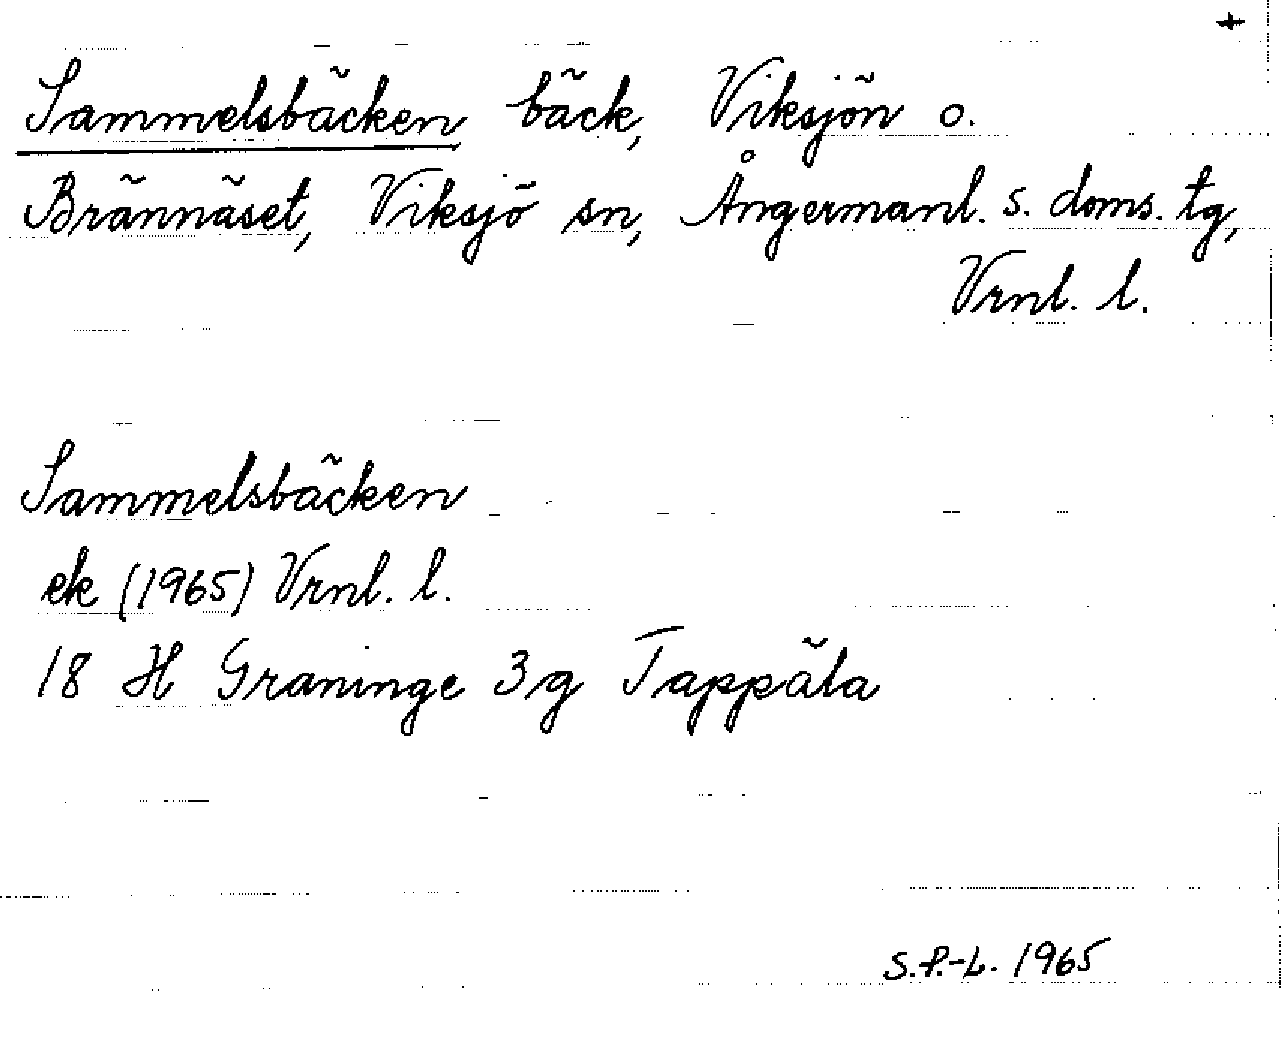 +
Sammelsbäcken bäck, Viksjön o.
Brännäset, Viksjö sn, Ångermanl. s. doms. tg,
Vrnl. l.
Sammelsbäcken
ek (1965) Vrnl. l.
18 H Graninge 3g Tappäla
S.P.-L. 1965